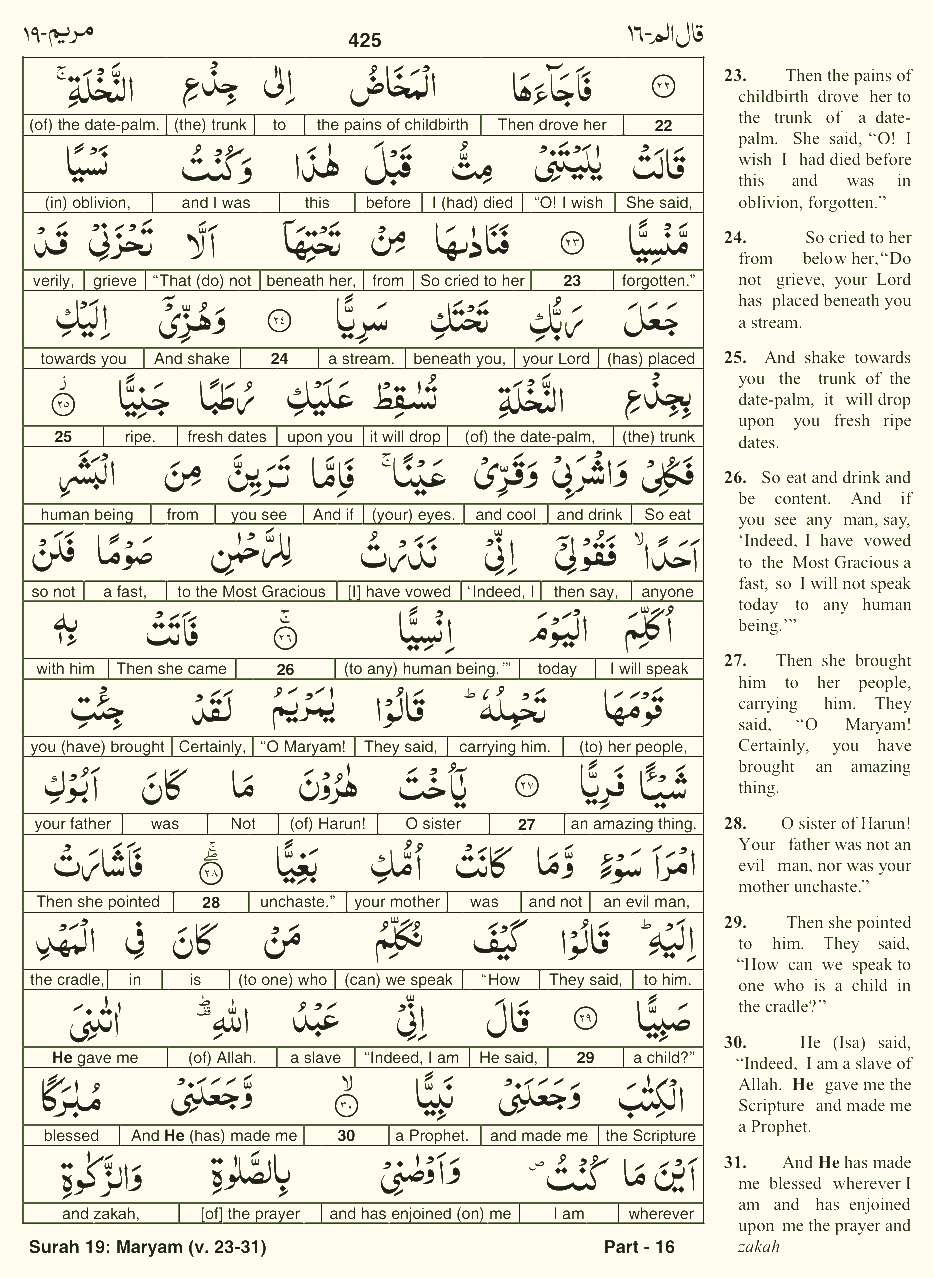 قال الم-١٦ 425 مريم-١٩
٢٢ فَاَجَآءَهَا الْمَخَاضُ اِلٰى جِذْعِ النَّخْلَةِ ۚ
22 Then drove her the pains of childbirth to (the) trunk (of) the date-palm.
قَالَتْ يٰلَيْتَنِيْ مِتُّ قَبْلَ هٰذَا وَكُنْتُ نَسْيًا
She said, “O! I wish I (had) died before this and I was (in) oblivion,
مَّنْسِيًّا ٢٣ فَنَادٰىهَا مِنْ تَحْتِهَآ اَلَّا تَحْزَنِيْ قَدْ
forgotten.” 23 So cried to her from beneath her, “That (do) not grieve verily,
جَعَلَ رَبُّكِ تَحْتَكِ سَرِيًّا ٢٤ وَهُزِّيْٓ اِلَيْكِ
(has) placed your Lord beneath you, a stream. 24 And shake towards you
بِجِذْعِ النَّخْلَةِ تُسٰقِطْ عَلَيْكِ رُطَبًا جَنِيًّا ٢٥
(the) trunk (of) the date-palm, it will drop upon you fresh dates ripe. 25
فَكُلِيْ وَاشْرَبِيْ وَقَرِّيْ عَيْنًا ۚ فَاِمَّا تَرَيِنَّ مِنَ الْبَشَرِ
So eat and drink and cool (your) eyes. And if you see from human being
اَحَدًا ۙ فَقُوْلِيْٓ اِنِّيْ نَذَرْتُ لِلرَّحْمٰنِ صَوْمًا فَلَنْ
anyone then say, ‘Indeed, I [I] have vowed to the Most Gracious a fast, so not
اُكَلِّمَ الْيَوْمَ اِنْسِيًّا ٢٦ ۚ فَاَتَتْ بِهٖ
I will speak today (to any) human being.’” 26 Then she came with him
قَوْمَهَا تَحْمِلُهٗ ؕ قَالُوْا يٰمَرْيَمُ لَقَدْ جِئْتِ
(to) her people, carrying him. They said, “O Maryam! Certainly, you (have) brought
شَيْـًٔا فَرِيًّا ٢٧ يٰٓاُخْتَ هٰرُوْنَ مَا كَانَ اَبُوْكِ
an amazing thing. 27 O sister (of) Harun! Not was your father
امْرَاَ سَوْءٍ وَّمَا كَانَتْ اُمُّكِ بَغِيًّا ٢٨ فَاَشَارَتْ
an evil man, and not was your mother unchaste.” 28 Then she pointed
اِلَيْهِ ؕ قَالُوْا كَيْفَ نُكَلِّمُ مَنْ كَانَ فِي الْمَهْدِ
to him. They said, “How (can) we speak (to one) who is in the cradle,
صَبِيًّا ٢٩ قَالَ اِنِّيْ عَبْدُ اللّٰهِ اٰتٰىنِيَ
a child?” 29 He said, “Indeed, I am a slave (of) Allah. He gave me
الْكِتٰبَ وَجَعَلَنِيْ نَبِيًّا ٣٠ ۙ وَّجَعَلَنِيْ مُبٰرَكًا
the Scripture and made me a Prophet. 30 And He (has) made me blessed
اَيْنَ مَا كُنْتُ ۪ وَاَوْصٰنِيْ بِالصَّلٰوةِ وَالزَّكٰوةِ
wherever I am and has enjoined (on) me [of] the prayer and zakah,
23. Then the pains of
childbirth drove her to
the trunk of a date-
palm. She said, “O! I
wish I had died before
this and was in
oblivion, forgotten.”
24. So cried to her
from below her,“Do
not grieve, your Lord
has placed beneath you
a stream.
25. And shake towards
you the trunk of the
date-palm, it will drop
upon you fresh ripe
dates.
26. So eat and drink and
be content. And if
you see any man, say,
‘Indeed, I have vowed
to the Most Gracious a
fast, so I will not speak
today to any human
being.’”
27. Then she brought
him to her people,
carrying him. They
said, “O Maryam!
Certainly, you have
brought an amazing
thing.
28. O sister of Harun!
Your father was not an
evil man, nor was your
mother unchaste.”
29. Then she pointed
to him. They said,
“How can we speak to
one who is a child in
the cradle?”
30. He (Isa) said,
“Indeed, I am a slave of
Allah. He gave me the
Scripture and made me
a Prophet.
31. And He has made
me blessed wherever I
am and has enjoined
upon me the prayer and
zakah
Surah 19: Maryam (v. 23-31) Part - 16